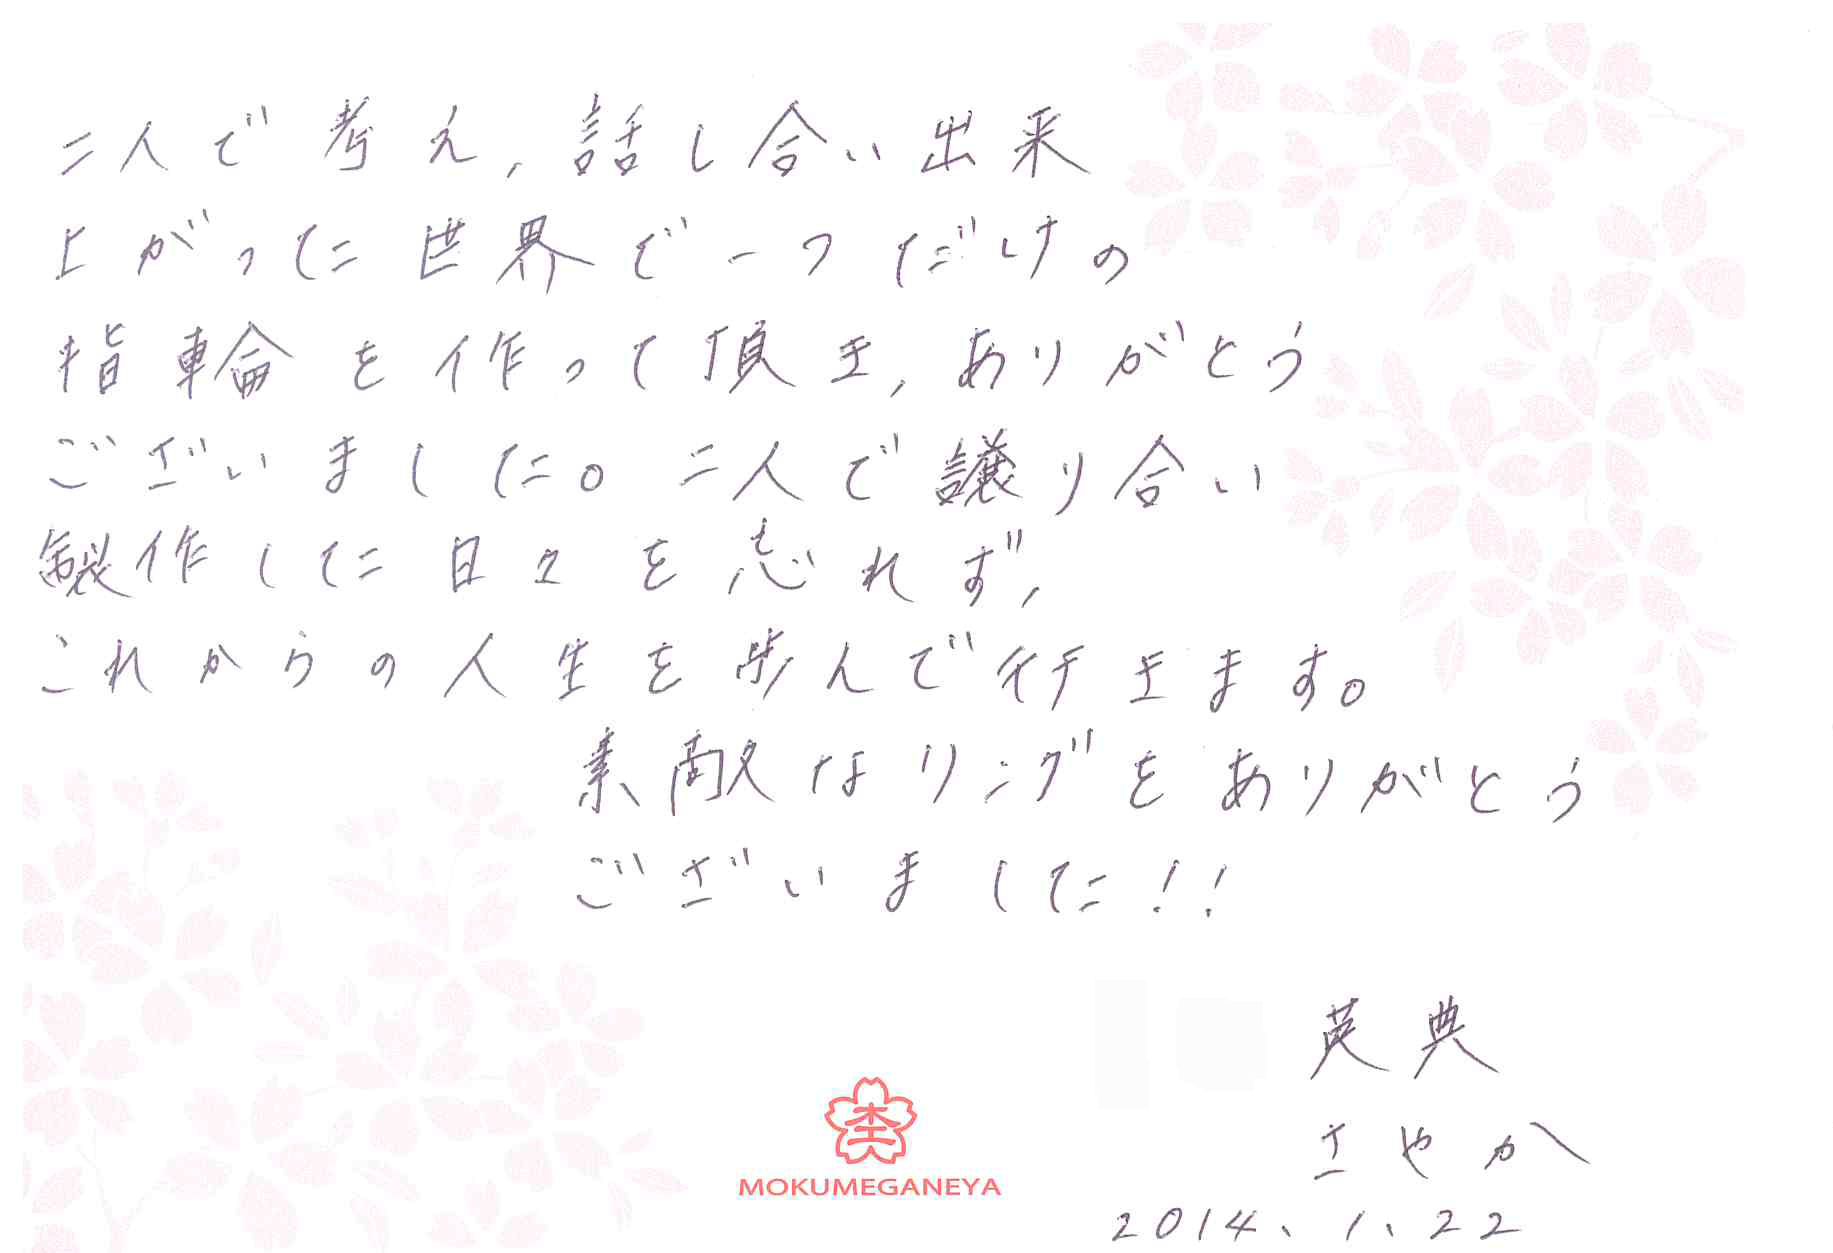 二人で考え、話し合い出来
上がった世界で一つだけの
指輪を作って頂き、ありがとう
ございました。二人で譲り合い
製作した日々を忘れず、
これからの人生を歩んで行きます。
素敵なリングをありがとう
ございました!!
英典
さやか
2014.1.22
杢
MOKUMEGANEYA